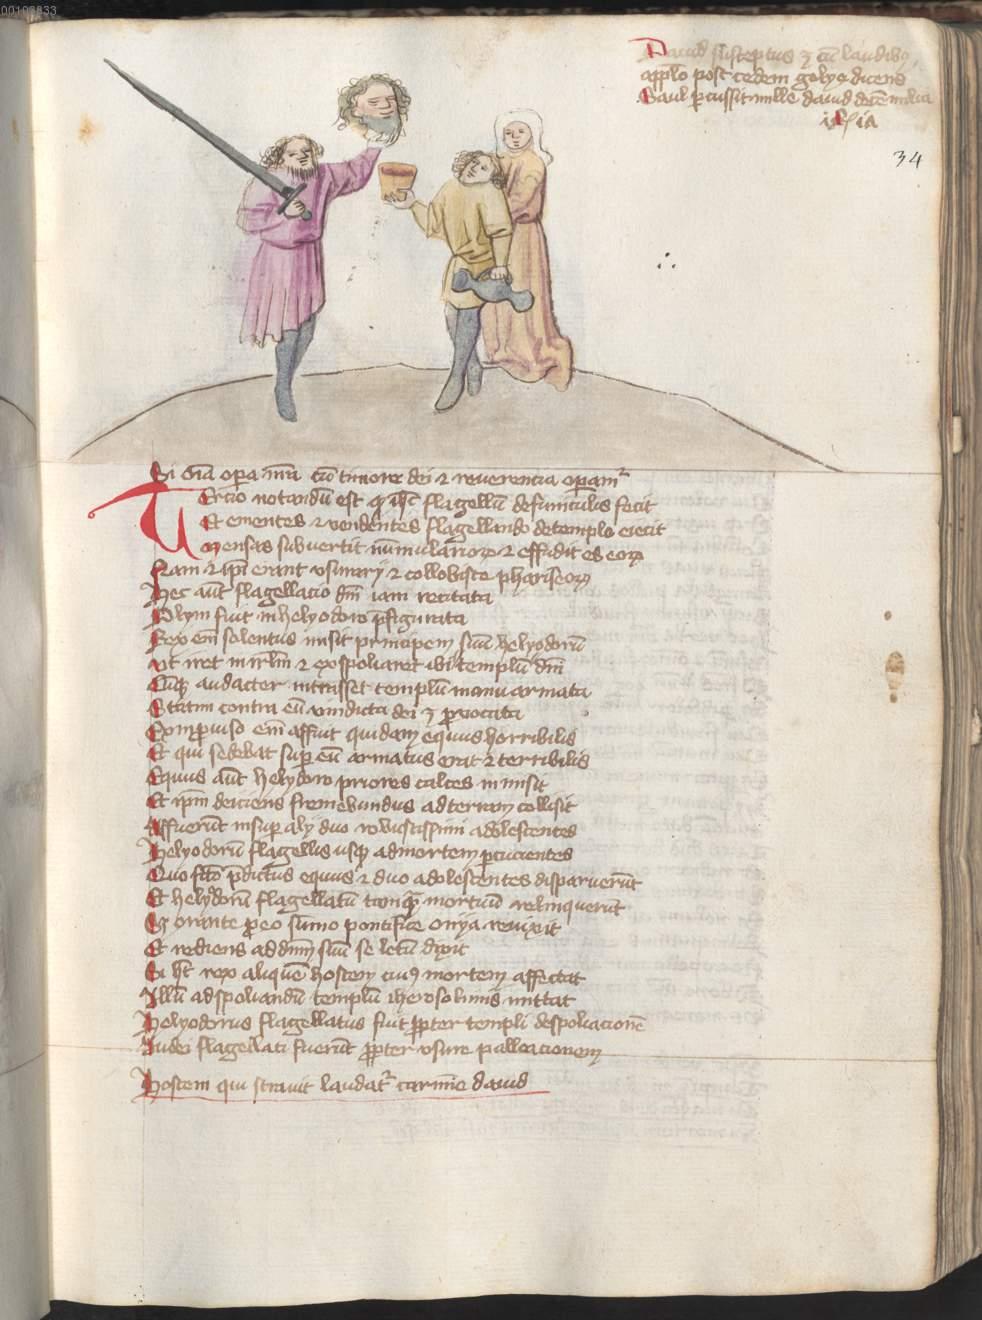 00103833
Dauid susceptus ꝫ cū laudibꝯ
applō post cedem golye dicens
Saul ꝑcussit mille dauid decē milia
34
Si oīa opa nr̄a cū timore dei ⁊ reuerencia opamur
Tercio notandū est ꝙ ihc̄ flagellū de funiculis fecit
Et ementes ⁊ vendentes flagellando de templo eiecit
Mensas subuertit nūmularioꝝ ⁊ effudit es eoꝝ
Nam ⁊ ip̄i erant vsurarij ⁊ collobiste phariseoꝝ
Hec aūt flagellacio dn̄i iam recitata
Olym fuit in helyodoro p̄figurata
Rex em̄ selentus misit principem suū helyodorū
Vt iret in irlm̄ ⁊ exspoliaret ibi templū dn̄i
Cūqꝫ audacter intrasset templū manu armata
Statim contra eū vindicta dei ꝫ ꝓuocata
Ex inprouiso em̄ affuit quidam equus horribilis
Et qui sedebat suꝑ eū armatus erat ⁊ terribilis
Equus aūt helydoro priores calces in misit
Et ip̄m deiciens fremebundus ad terram collisit
Affuerūt insuꝑ alij duo robustissimi adolescentes
Helyodorū flagellis usqꝫ ad mortem ꝑcucientes
Quo fcō p̄dictus equus ⁊ duo adolescentes disparuerūt
Et helydorū flagellatū tamqꝫ mortuū relinquerūt
Sꝫ orante ꝓ eo sūmo pontifice onya reuixit
Et rediens ad dn̄m suū se letū dixit
Si hꝫ rex aliquē hostem cuiꝯ mortem affectat
Illū ad spoliandū templū iherosolimis mittat
Helyodorus flagellatus fuit ꝓpter templi despoliacionē
Iudei flagellati fuerūt ꝓpter vsure palliacionem
Hostem qui strauit laudatur carmīe dauid